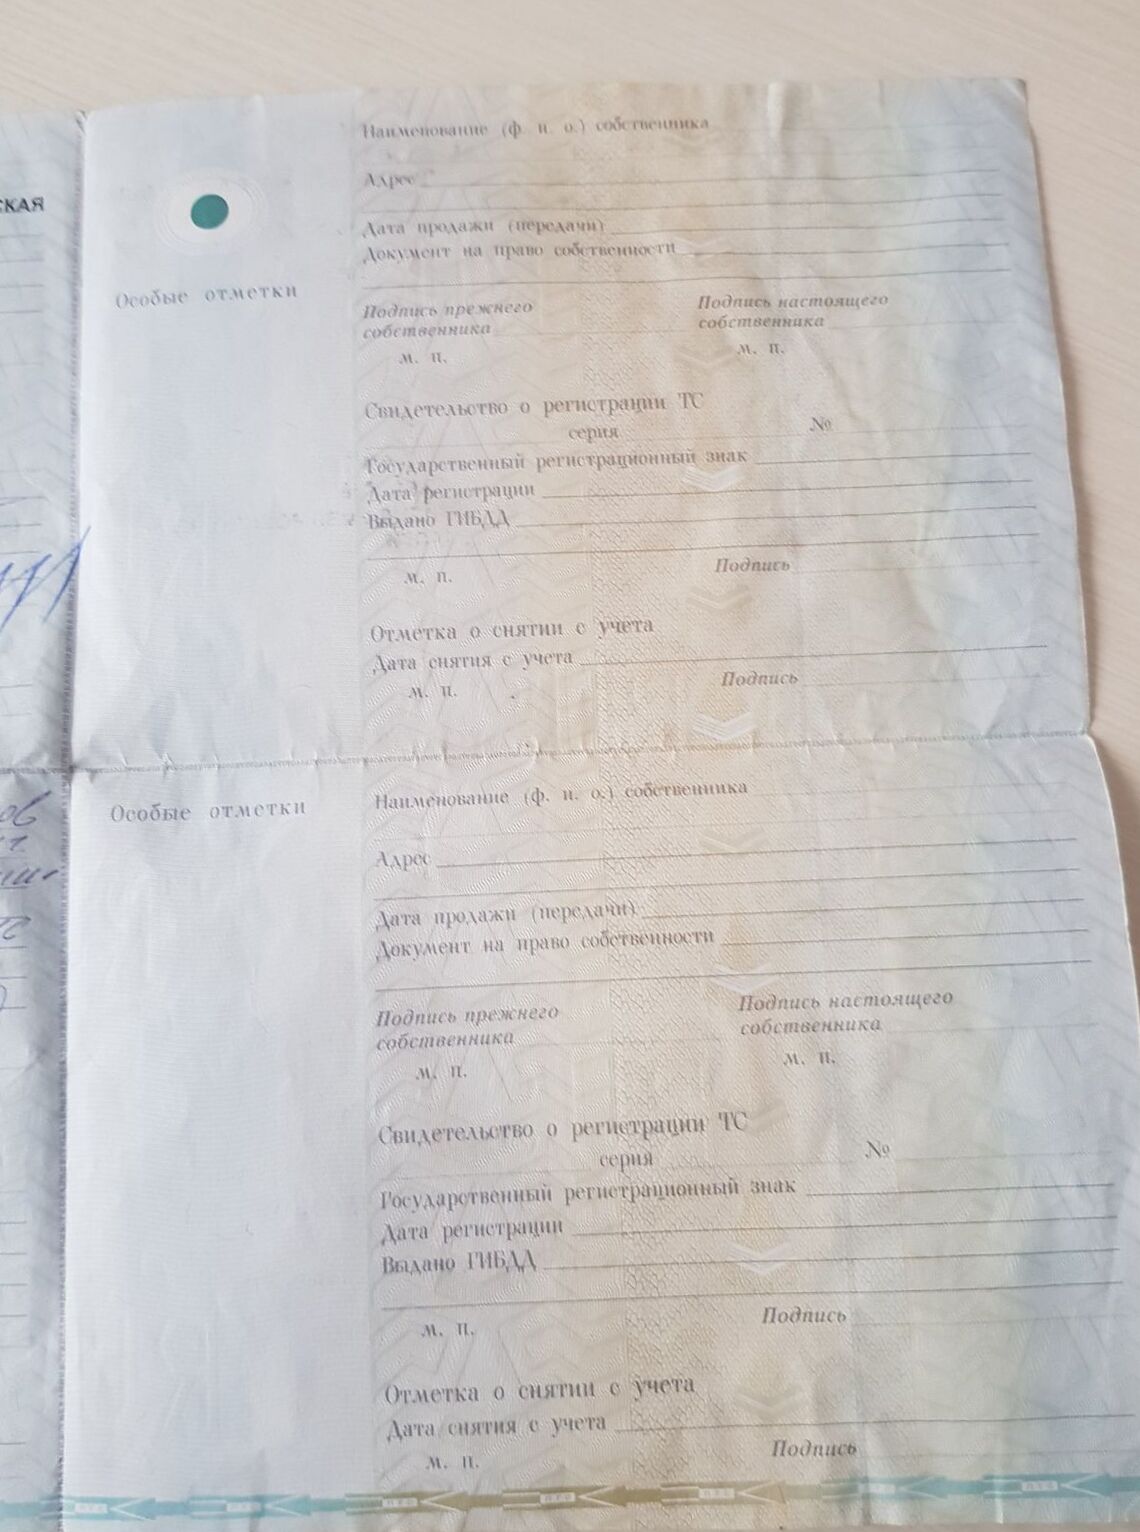 СКАЯ
Наименование (ф. и. о.) собственника
Адрес
Дата продажи (передачи)
Документ на право собственности
Особые отметки
Подпись прежнего
собственника
Подпись настоящего
собственника
м. п.
м. п.
Свидетельство о регистрации ТС
серия №
Государственный регистрационный знак
Дата регистрации
Выдано ГИБДД
м. п.
Подпись
Отметка о снятии с учета
Дата снятия с учета
м. п.
Подпись
Особые отметки
Наименование (ф. и. о.) собственника
Адрес
Дата продажи (передачи)
Документ на право собственности
Подпись прежнего
собственника
Подпись настоящего
собственника
м. п.
м. п.
Свидетельство о регистрации ТС
серия №
Государственный регистрационный знак
Дата регистрации
Выдано ГИБДД
м. п.
Подпись
Отметка о снятии с учета
Дата снятия с учета
м. п.
Подпись